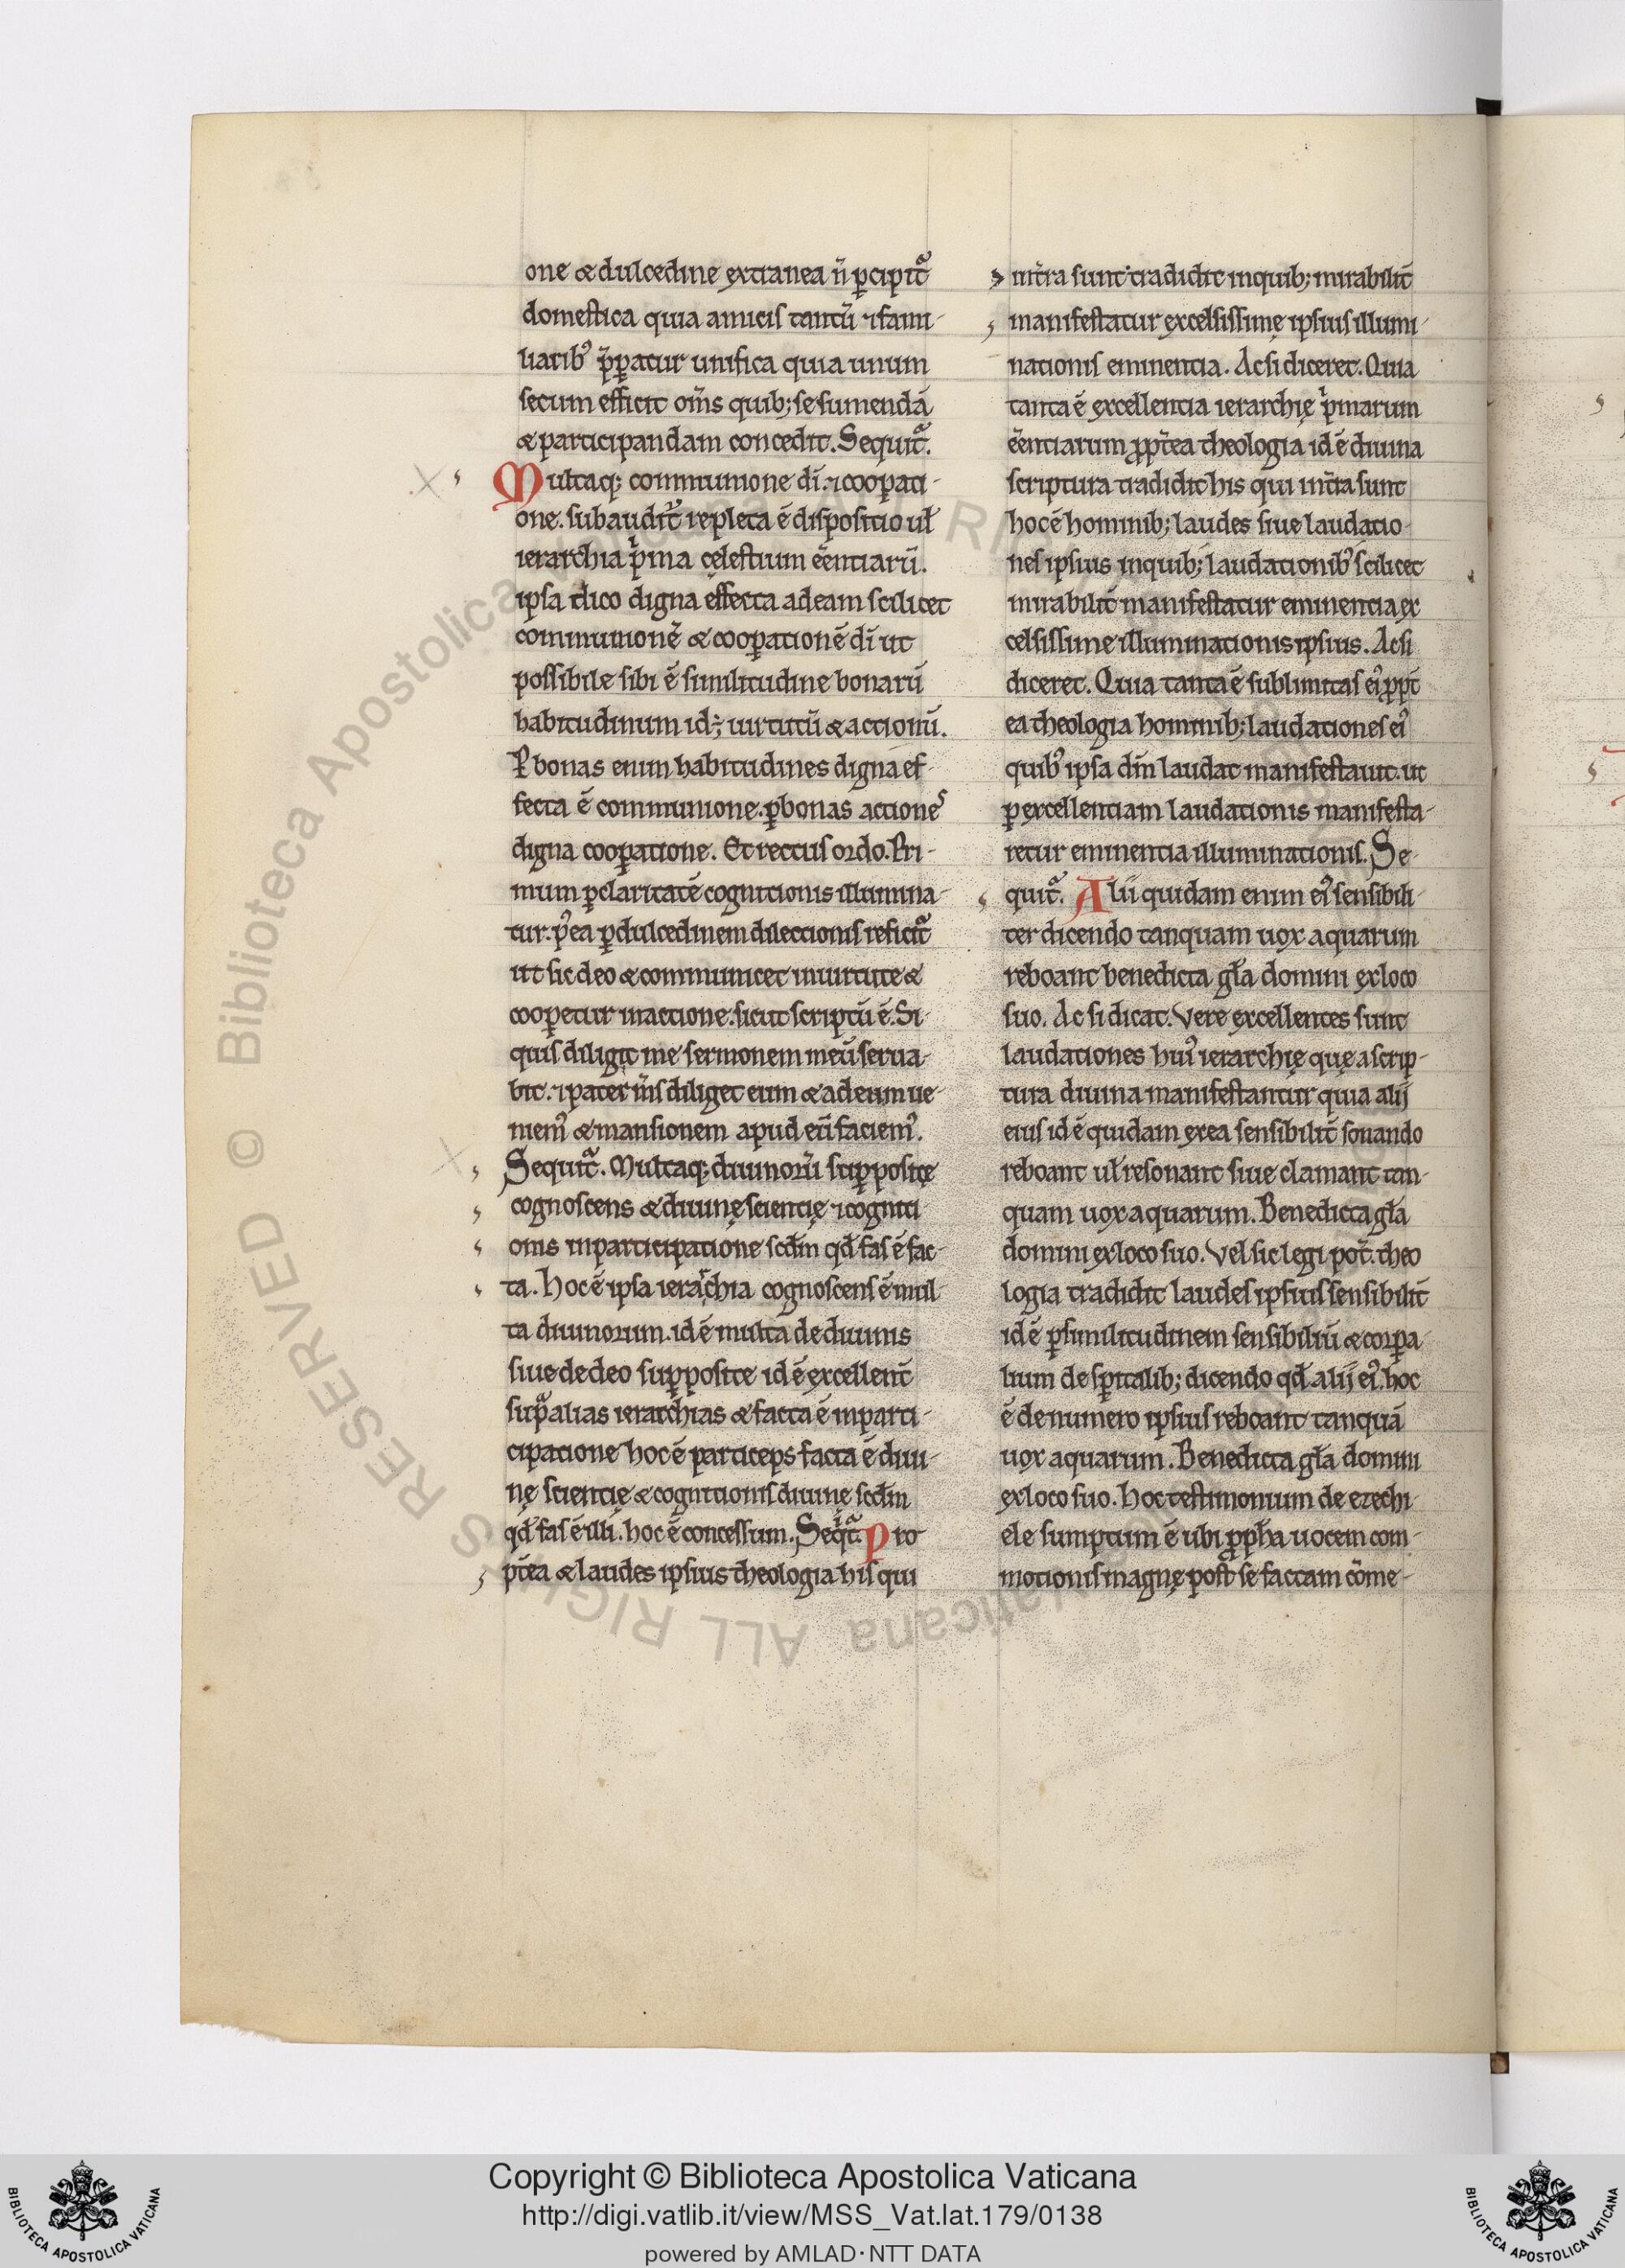 one & dulcedine extranea n̄ ꝑcipit᷑
domestica quia amicis tantū ⁊ fami-
liarib᷒ p̄ꝑatur unifica quia unum
secum efficit om̄s quib; se sumendā
& participandam concedit. Sequit᷑.
Multaq; communione dī. ⁊ cooꝑati-
one. subaudit᷑ repleta ē dispositio ul̄
ierarchia p̄ma cęlestium eēntiarū.
ipsa dico digna effecta ad eam scilicet
communionē & cooꝑationē dī ut
possibile sibi ē similitudine bonarū
habitudinum id ÷ uirtutū & actionū.
Ꝑ bonas enim habitudines digna ef-
fecta ē communione. ꝑ bonas actiones
digna cooꝑatione. Et rectus ordo. Pri-
mum ꝑ claritatē cognitionis illumina-
tur. p᷒ea ꝑ dulcedinem dilectionis reficit᷑
ut sic deo & communicet in uirtute &
cooꝑetur in actione. sicut scriptū ē. Si
quis diligit me sermonem meū serua-
bit. ⁊ pater m̄s diliget eum & ad eum ue-
niem᷒ & mansionem apud eū faciem᷒.
Sequit᷑. Multaq; diuinorū suꝑposite
cognoscens & diuinę scientię ⁊ cogniti
onis in participatione scd̄m qd̄ fas ē fac-
ta. Hoc ē ipsa ierarchia cognoscens ē mul-
ta diuinorum. id ē multa de diuinis
siue de deo suꝑposite id ē excellent̄
sup̄ alias ierarchias & facta ē in parti-
cipatione hoc ē particeps facta ē diui-
nę scientię & cognitionis diuinę scd̄m
qd̄ fas ē illi. hoc ē concessum. Seqit᷑. Pro
pt̄ea & laudes ipsius theologia his qui
int̄ra sunt tradidit in quib; mirabilit̄
manifestatur excelsissimę ipsius illumi-
nationis eminentia. Ac si diceret. Quia
tanta ē excellentia ierarchię p̄marum
eēntiarum ꝓpt̄ea theologia id ē diuina
scriptura tradidit his qui int̄ra sunt
hoc ē hominib; laudes siue laudatio-
nes ipsius in quib; laudationib᷒ scilicet
mirabilit̄ manifestatur eminentia ex
celsissime illuminationis ipsius. Ac si
diceret. Quia tanta ē sublimitas ei᷒ ꝓpt̄
ea theologia hominib; laudationes ei᷒
quib᷒ ipsa dm̄ laudat manifestauit. ut
ꝑ excellentiam laudationis manifesta-
retur eminentia illuminationis. Se-
quit᷑. Alii quidam enim ei᷒ sensibili-
ter dicendo tanquam uox aquarum
reboant benedicta gl̄a domini ex loco
suo. Ac si dicat. Vere excellentes sunt
laudationes hui᷒ ierarchię quę a scrip-
tura diuina manifestantur quia alij
eius id ē quidam ex ea sensibilit̄ sonando
reboant ul̄ resonant siue clamant tan-
quam uox aquarum. Benedicta gl̄a
domini ex loco suo. Vel sic legi pot̄. theo
logia tradidit laudes ipsius sensibilit̄
id ē ꝑ similitudinem sensibiliū & corꝑa-
lium de sp̄italib; dicendo qd̄ alij ei᷒. hoc
ē de numero ipsius reboant tanquā
uox aquarum. Benedicta gl̄a domini
ex loco suo. Hoc testimonium de ezechi-
ele sumptum ē ubi ꝓph̄a uocem com-
motionis magnę post se factam cōme-
Copyright © Biblioteca Apostolica Vaticana
http://digi.vatlib.it/view/MSS_Vat.lat.179/0138
powered by AMLAD·NTT DATA